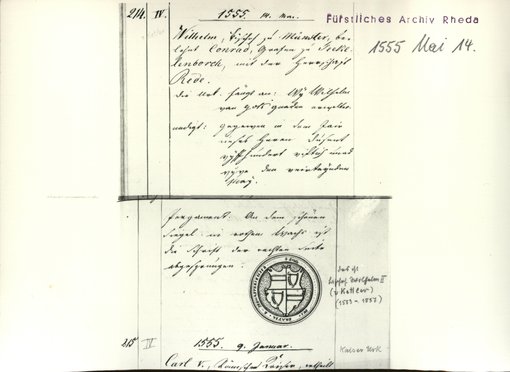 214. IV.
1555. 14. Mai.
Fürstliches Archiv Rheda
1555 Mai 14.
Wilhelm, Bischof zu Münster, be-
lehnt Conrad, Grafen zu Teckl-
lenborch, mit der Herrschaft
Rede.
die Urk. fängt an: Wy Wilhelm
van gots gnaden erwelter
endigt: gegeven in dem Jair
unses Heren Dusent
vyffhundert vifftich und
vyve den veirteynden
May.
Pergament. An dem schönen
Siegel in rothem Wachs ist
die Schrift der rechten Seite
abgesprungen:
Das ist
Bischof Wilhelm II
(v. Kettler)
(1553-1557)
215 IV
1555. 9. Januar.
Kaiser Urk
Carl V, Römischer Kaiser, ertheilt